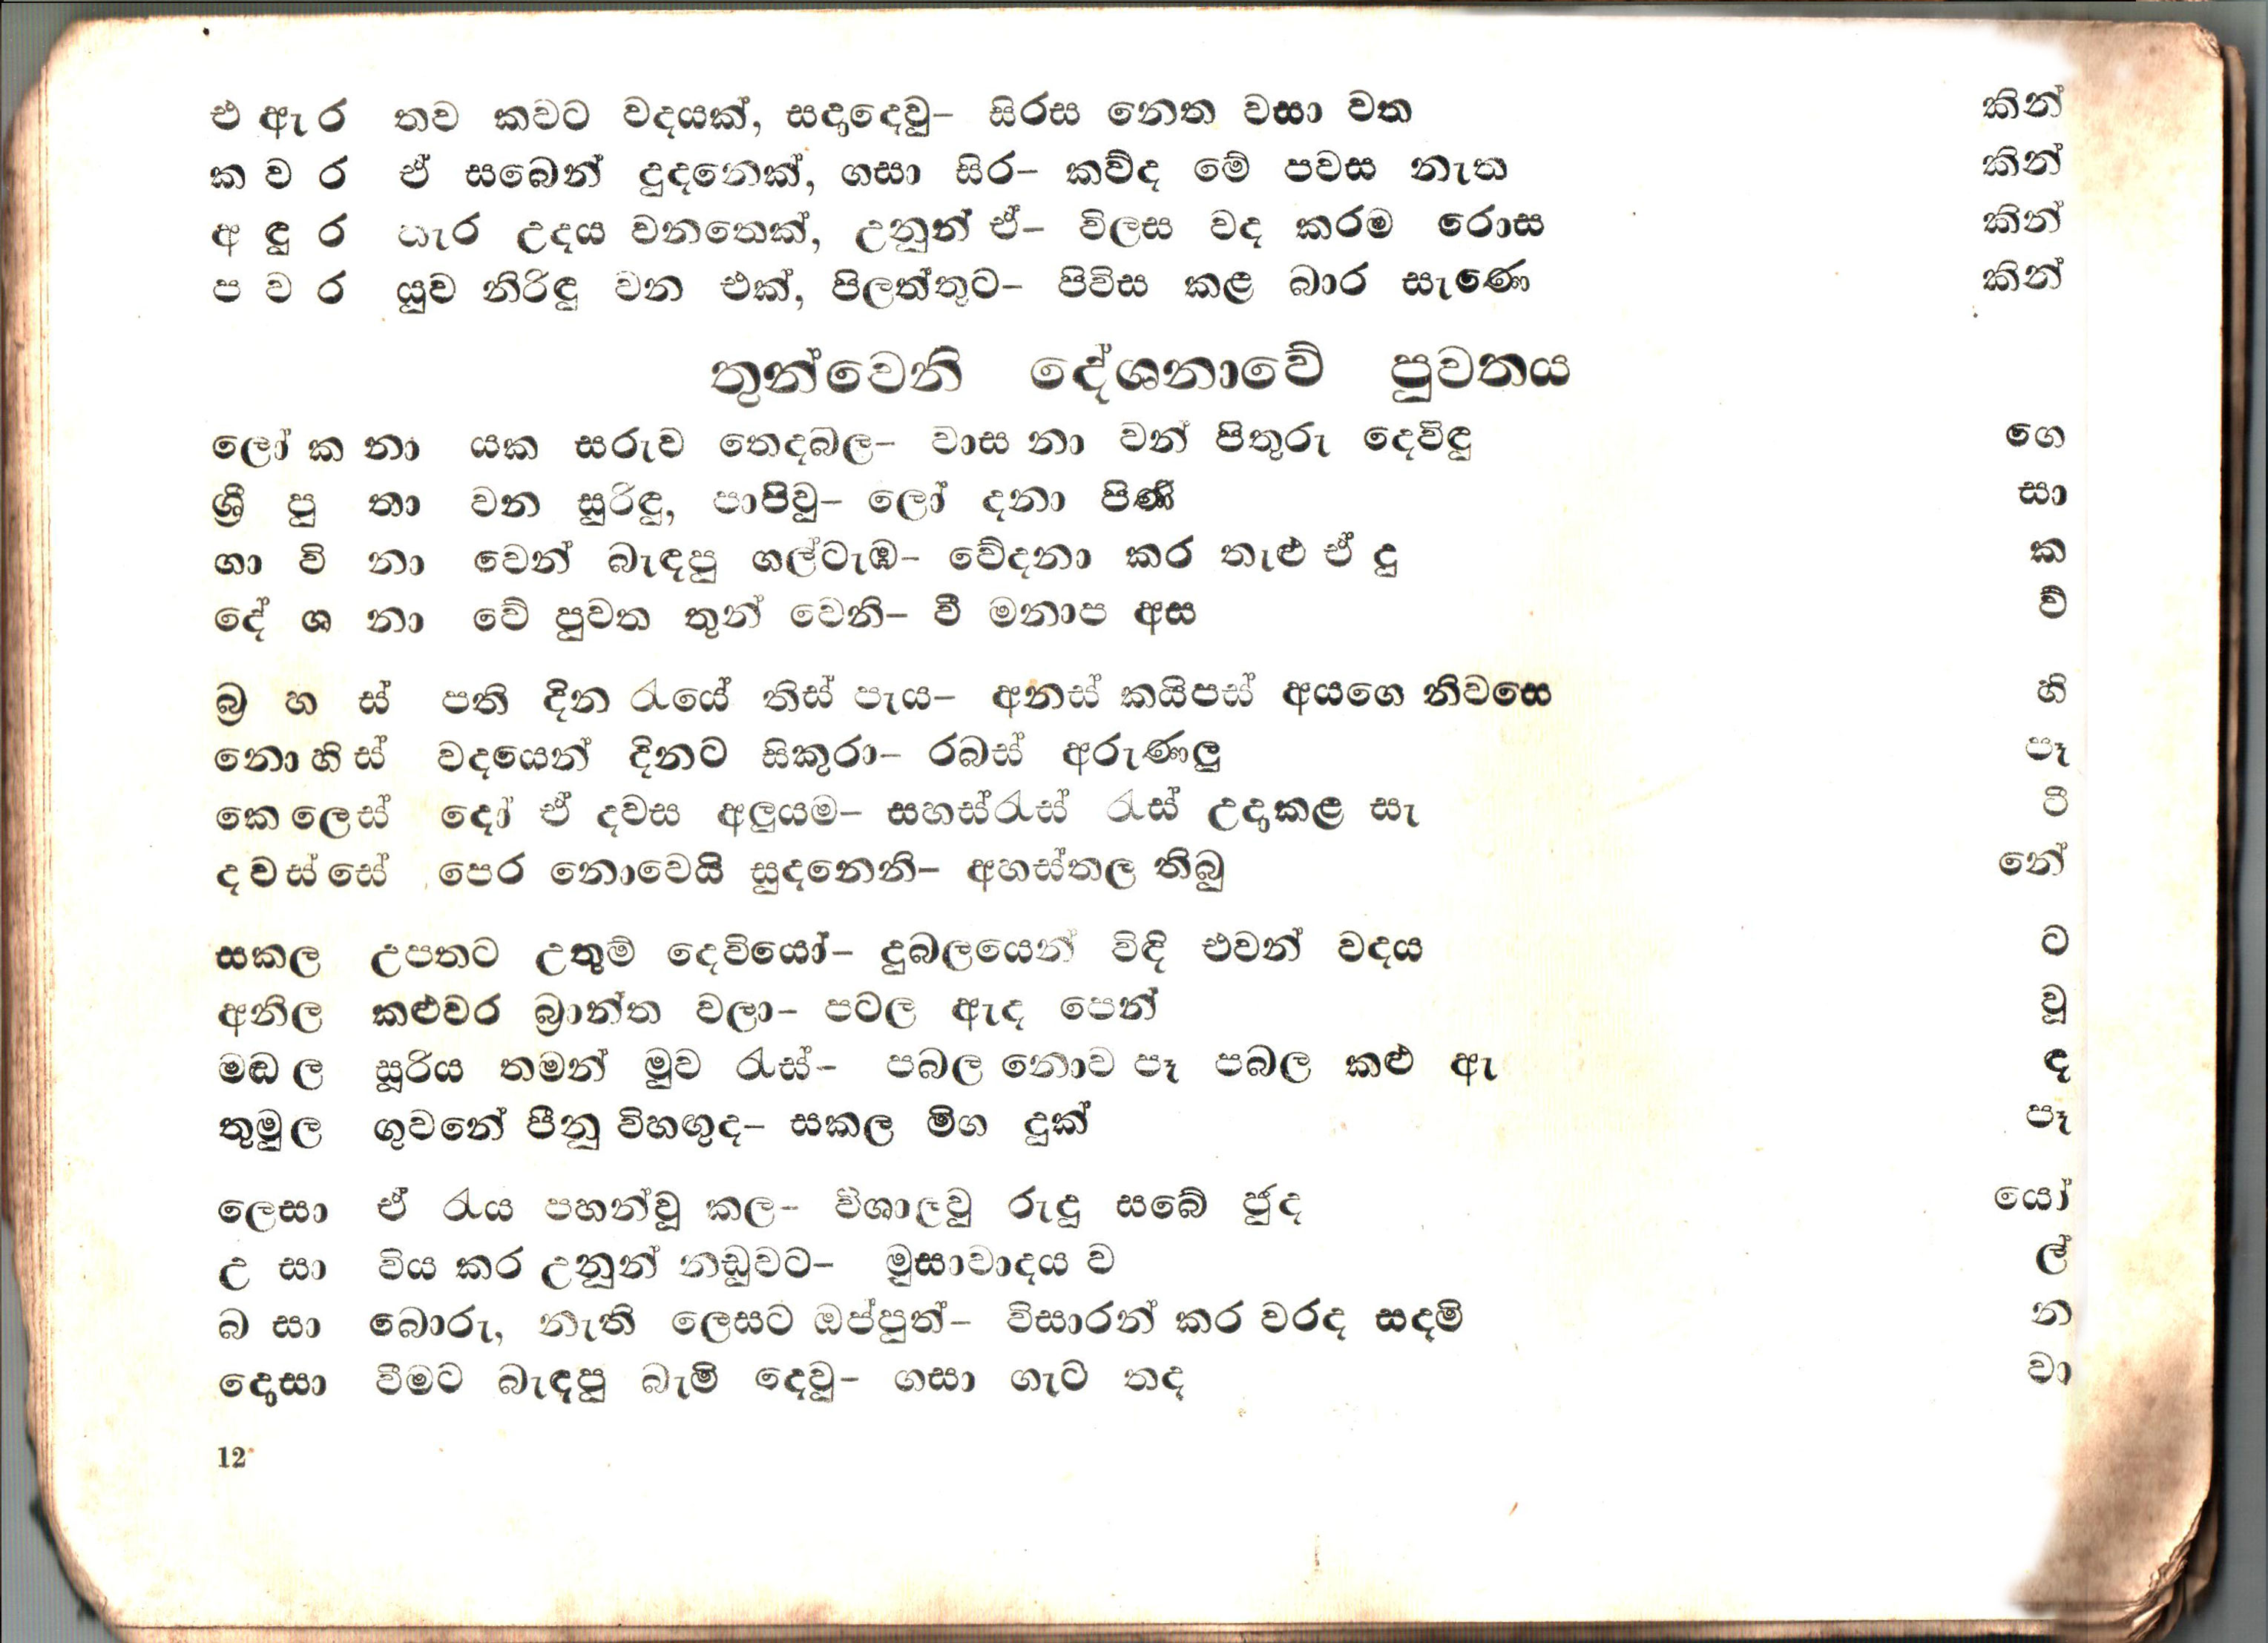 එ ඇ ර තව කවට වදයක්, සදාදෙවු- සිරස නෙත වසා වත කින්
ක ව ර ඒ සබෙන් දුදනෙක්, ගසා සිර- කව්ද මේ පවස නැත කින්
අ ඳු ර හැර උදය වනතෙක්, උනුන් ඒ- විලස වද කරම රොස කින්
ප ව ර යුව නිරිඳු වන එක්, පිලත්තුට- පිවිස කළ බාර සැණෙ කින්
තුන්වෙනි දේශනාවේ පුවතය
ලෝ ක නා යක සරුව තෙදබල- වාස නා වන් පිතුරු දෙවිඳු ගෙ
ශ්‍රී පු තා වන සුරිඳු, පාපිවු- ලෝ දනා පිණි සා
ගා වි නා වෙන් බැඳපු ගල්ටැඹ- වේදනා කර තැළු ඒ දු ක
දේ ශ නා වේ පුවත තුන් වෙනි- වී මනාප අස ව්
බ්‍ර හ ස් පති දින රැයේ තිස් පැය- අනස් කයිපස් අයගෙ නිවසෙ හි
නො හි ස් වදයෙන් දිනට සිකුරා- රබස් අරුණලු පෑ
කෙ ලෙස් දෝ ඒ දවස අලුයම- සහස්රැස් රැස් උදාකළ සැ ටි
ද ව ස් සේ පෙර නොවෙයි සුදනෙනි- අහස්තල තිබු නේ
සකල උපතට උතුම් දෙවියෝ- දුබලයෙන් විඳි එවන් වදය ට
අනිල කළුවර බ්‍රාන්ත වලා- පටල ඇද පෙන් වූ
මඬ ල සූරිය තමන් මුව රැස්- පබල නොව පෑ පබල කළු ඇ ඳ
තුමුල ගුවනේ පීනු විහඟුද- සකල මිග දුක් පෑ
ලෙසා ඒ රැය පහන්වූ කල- විශාලවු රුදු සබේ ජුද යෝ
උ සා විය කර උනුන් නඩුවට- මුසාවාදය ව ල්
බ සා බොරු, නැති ලෙසට ඔප්පුත්- විසාරන් කර වරද සදමි න
දොසා වීමට බැඳපු බැමි දෙවූ- ගසා ගැට තද වා
12